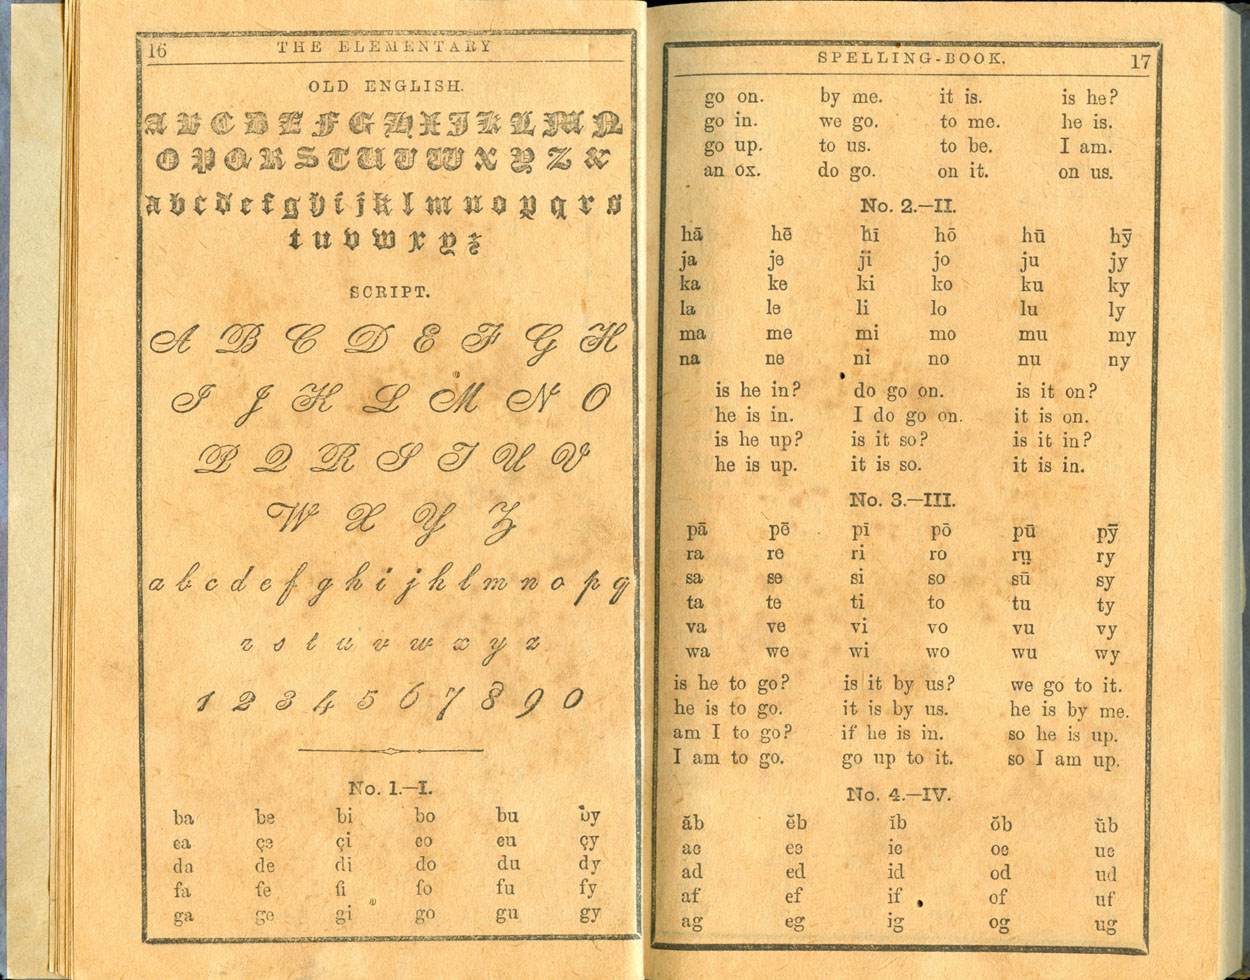 16 THE ELEMENTARY
OLD ENGLISH.
A B C D E F G H I J K L M N
O P Q R S T U V W X Y Z &
a b c d e f g h i j k l m n o p q r s
t u v w x y z
SCRIPT.
A B C D E F G H
I J K L M N O
P Q R S T U V
W X Y Z
a b c d e f g h i j k l m n o p q
r s t u v w x y z
1 2 3 4 5 6 7 8 9 0
No. 1.—I.
ba be bi bo bu by
ca çe çi co cu çy
da de di do du dy
fa fe fi fo fu fy
ga ge gi go gu gy
SPELLING-BOOK. 17
go on. by me. it is. is he?
go in. we go. to me. he is.
go up. to us. to be. I am.
an ox. do go. on it. on us.
No. 2.—II.
hā hē hī hō hū hȳ
ja je ji jo ju jy
ka ke ki ko ku ky
la le li lo lu ly
ma me mi mo mu my
na ne ni no nu ny
is he in? do go on. is it on?
he is in. I do go on. it is on.
is he up? is it so? is it in?
he is up. it is so. it is in.
No. 3.—III.
pā pē pī pō pū pȳ
ra re ri ro rṳ ry
sa se si so sū sy
ta te ti to tu ty
va ve vi vo vu vy
wa we wi wo wu wy
is he to go? is it by us? we go to it.
he is to go. it is by us. he is by me.
am I to go? if he is in. so he is up.
I am to go. go up to it. so I am up.
No. 4.—IV.
ăb ĕb ĭb ŏb ŭb
ac ec ic oc uc
ad ed id od ud
af ef if of uf
ag eg ig og ug